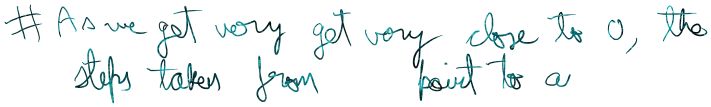 # As we get very get very close to 0, the
steps taken from point to a